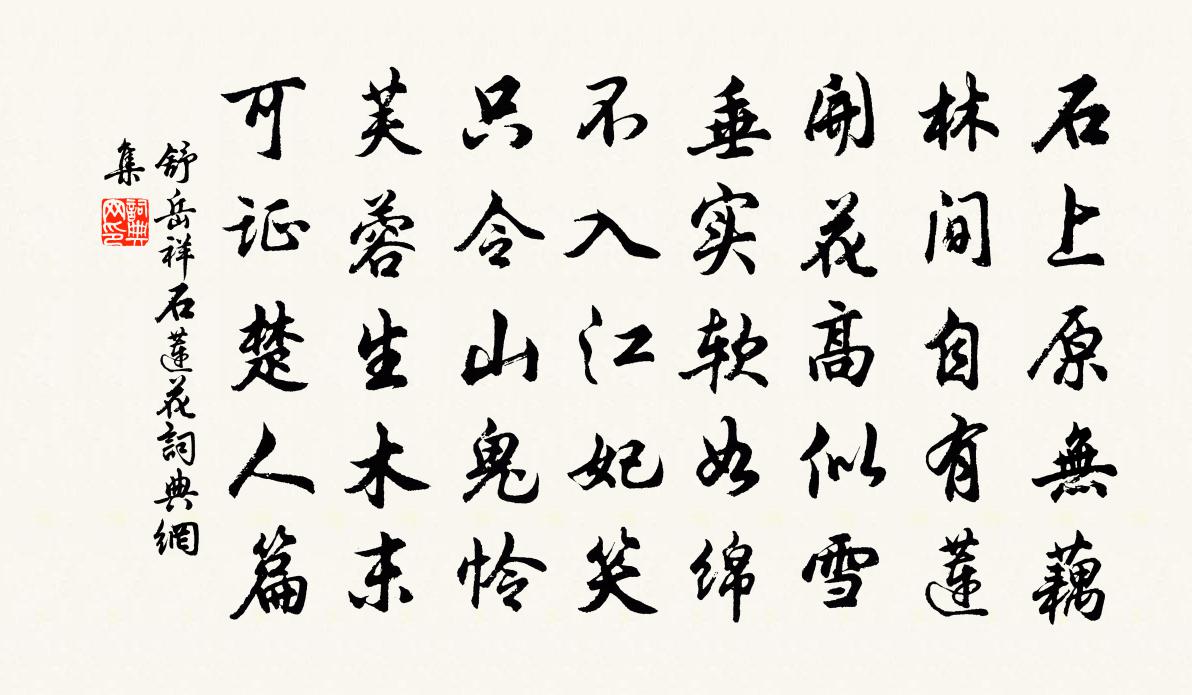 石上原無藕
林间自有蓮
開花高似雪
垂实软如绵
不入江妃笑
只令山鬼怜
芙蓉生木末
可证楚人篇
舒岳祥石蓮花詞典網
集
詞典
网印